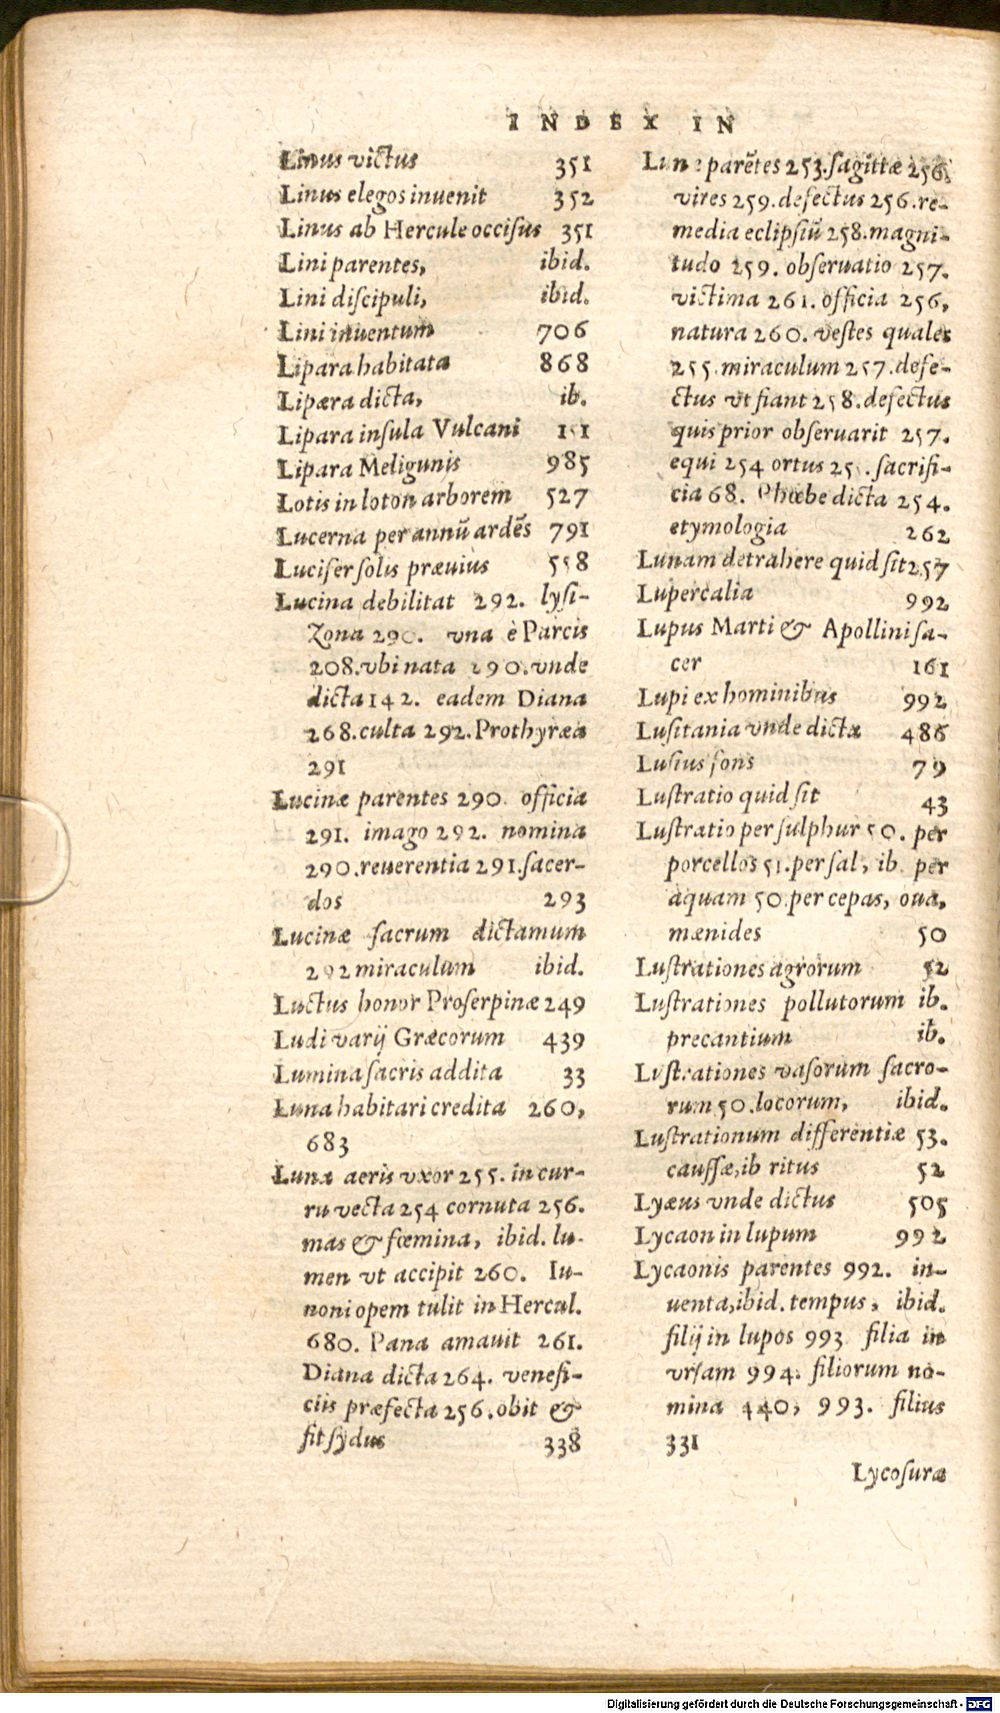 INDEX IN
Linus victus 351
Linus elegos inuenit 352
Linus ab Hercule occiſus 351
Lini parentes, ibid.
Lini diſcipuli, ibid.
Lini inuentum 706
Lipara habitata 868
Lipæra dicta, ib.
Lipara inſula Vulcani
Lipara Meligunis 985
Lotis in loton arborem 527
Lucerna per annū ardēs 791
Lucifer ſolis præuius 558
Lucina debilitat 292. lyſi-
zona 290. vna è Parcis
208. vbi nata 290. vnde
dicta 142. eadem Diana
268. culta 292. Prothyræa
291
Lucinæ parentes 290. officia
291. imago 292. nomina
290. reuerentia 291. ſacer-
dos 293
Lucinæ ſacrum dictamum
292 miraculum ibid.
Luctus honor Proſerpinæ 249
Ludi varij Græcorum 439
Lumina ſacris addita 33
Luna habitari credita 260,
683
Luna aeris vxor 255. in cur-
ru vecta 254 cornuta 256.
mas & fœmina, ibid. lu-
men vt accipit 260. Iu-
noni opem tulit in Hercul.
680. Pana amauit 261.
Diana dicta 264. venefi-
ciis præfecta 256. obit &
fit ſydus 338
Lunæ parētes 253. ſagittæ 256.
vires 259. defectus 256. re-
media eclipſiū 258. magni-
tudo 259. obſeruatio 257.
victima 261. officia 256,
natura 260. veſtes quales
255. miraculum 257. defe-
ctus vt fiant 258. defectus
quis prior obſeruarit 257.
equi 254 ortus ſacrifi-
cia 68. Phœbe dicta 254.
etymologia 262
Lunam detrahere quid ſit 257
Lupercalia 992
Lupus Marti & Apollini ſa-
cer 161
Lupi ex hominibus 992
Luſitania vnde dicta 486
Luſius fons 79
Luſtratio quid ſit 43
Luſtratio per ſulphur 50. per
porcellos 51. per ſal, ib. per
aquam 50. per cepas, oua,
mænides 50
Luſtrationes agrorum 52
Luſtrationes pollutorum ib.
precantium ib.
Luſtrationes vaſorum ſacro-
rum 50. locorum, ibid.
Luſtrationum differentiæ 53.
cauſſæ, ib ritus 52
Lyæus vnde dictus 505
Lycaon in lupum 992
Lycaonis parentes 992. in-
uenta, ibid. tempus, ibid.
filij in lupos 993 filia in
vrſam 994. filiorum no-
mina 440, 993. filius
331
Lycoſuræ
Digitalisierung gefördert durch die Deutsche Forschungsgemeinschaft - DFG